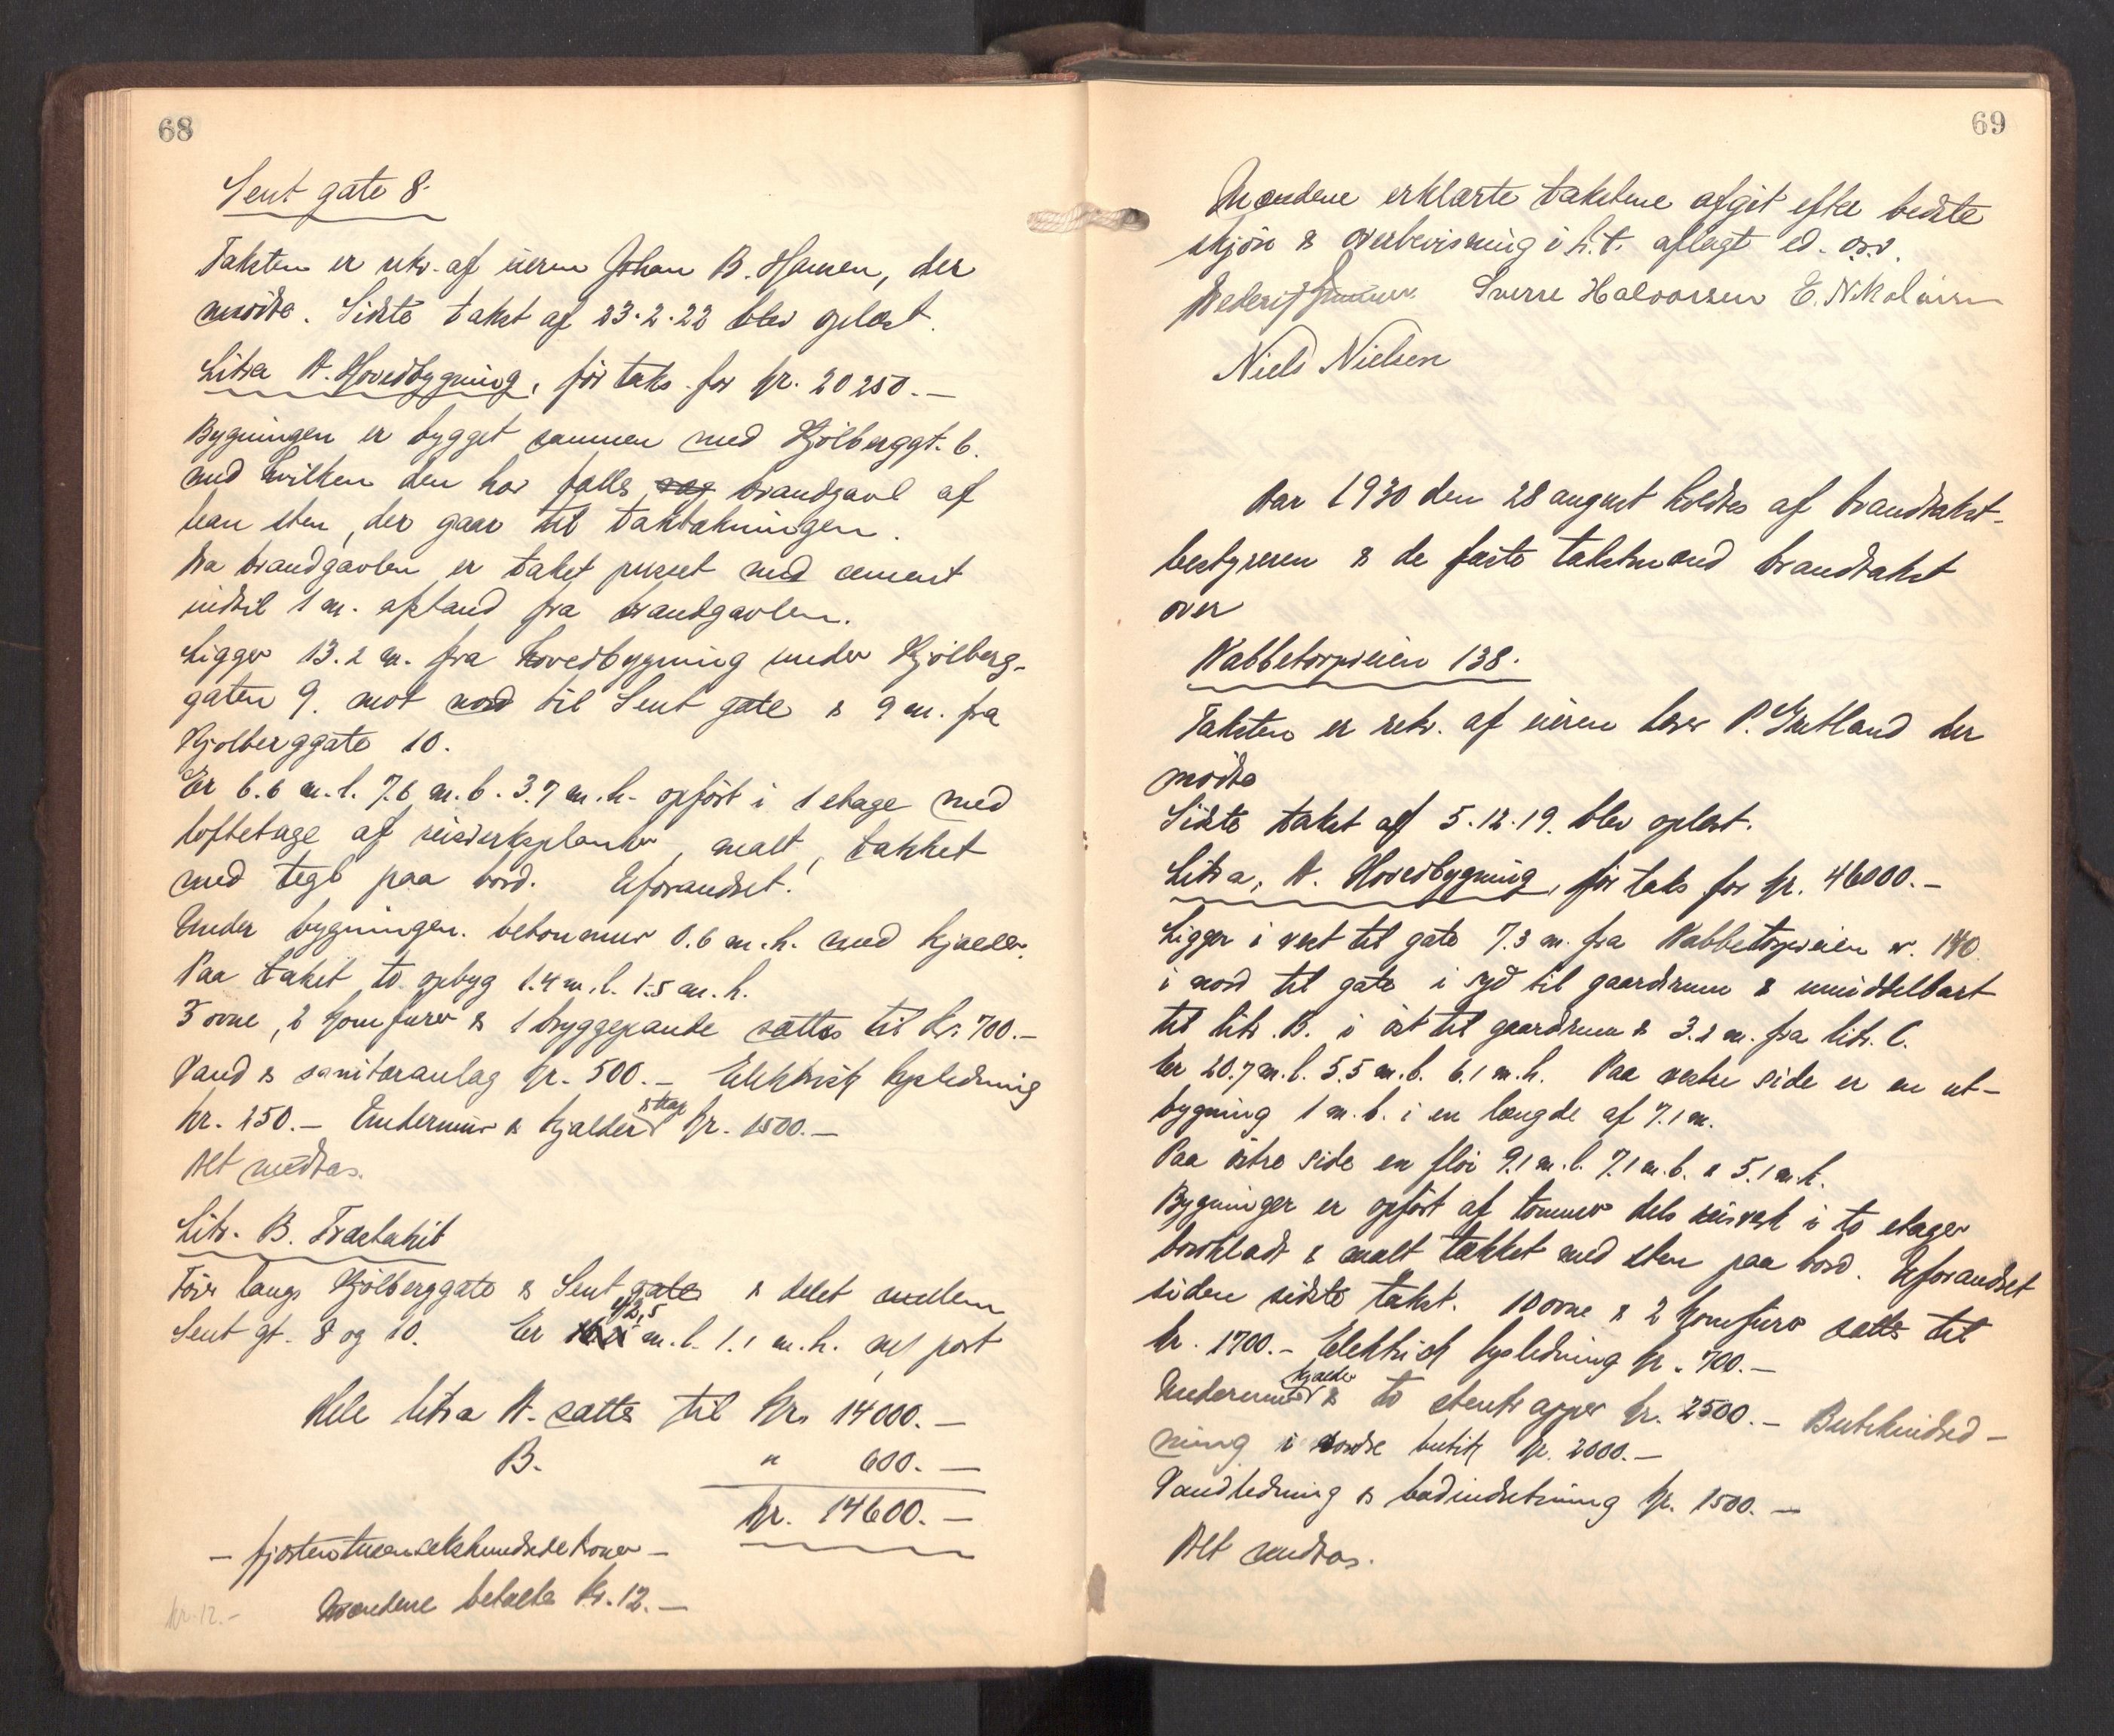 68
Sent gate 8.
Taksten er rekv. af eieren Johan B. Hansen, der
mødte. Sidste takst af 23.2.22 blev oplæst.
Litra A. Hovedbygning, før taks. for kr. 20250.-
Bygningen er bygget sammen med Kjölberggt. 6.
med hvilken den har fælles brandgavl af
sten, der gaar til taktækningen.
Fra brandgavlen er taket pusset med cement
indtil 1 m. afstand fra brandgavlen.
Ligger 13.2 m. fra hovedbygning under Kjölberg-
gaten 9. mot nord til Sent gate & 9 m. fra
Kjölberggate 10.
Er 6.6 m. l. 7.6 m. b. 3.7 m. h. opført i 1 etage med
loftetage af reisverksplanker, malt, tækket
med tegl paa bord. Uforandret.
Under bygningen betonmur 0.6 m. h. med kjælder.
Paa taket to opbyg 1.4 m. l. 1.5 m. h.
3 ovne, 2 komfurer & 1 bryggepande sættes til kr. 700.-
Vand & sanitæranlæg kr. 500.- Elektrisk lysledning
kr. 250.- Undermur & kjælder & trap kr. 1500.-
Alt medtas.
Litr. B. Træstakit
Fører langs Kjölberggate & Sent gate & delet mellem
Sent gt. 8 og 10. Er 42,5 m. l. 1.1 m. h. m/ port
Hele litra A. sættes til kr. 14000.-
B. " 600.-
kr. 14600.-
- fjortentusensekshundrede kroner -
Mændene betalte kr. 12.-
kr. 12.-
69
Mændene erklærte takstene afgit efter bedste
skjøn & overbevisning i h.t. aflagt ed. o.s.v.
Sverre Halvorsen E. Nikolaisen
Niels Nielsen
Aar 1930 den 28 august holdtes af brandtakst-
bestyreren & de faste takstmænd brandtakst
over
Nabbetorpveien 138.
Taksten er rekv. af eieren P. Gretland der
mødte
Sidste takst af 5.12.19. blev oplæst.
Litra, A. Hovedbygning, før taks. for kr. 46000.-
Ligger i vest til gate 7.3 m. fra Nabbetorpveien nr. 140
i nord til gate i syd til gaardsrum & umiddelbart
til litr. B. i øst til gaardsrum & 3.2 m. fra litr. C.
Er 20.7 m. l. 5.5 m. b. 6.1 m. h. Paa vestre side er en ut-
bygning 1 m. b. i en længde af 7.1 m.
Paa østre side en fløi 9.1 m. l. 7.1 m. b. & 5.1 m. h.
Bygninger er opført af tømmer dels reisverk i to etager
bordklædt & malt tækket med sten paa bord. Uforandret
siden sidste takst. 10 ovne & 2 komfurer sættes til
kr. 1700.- Elektrisk lysledning kr. 700.-
Undermur kjælder & to stentrapper kr. 2500.- Butikindred-
ning i søndre butik kr. 2000.-
Vandledning & badindretning kr. 1500.-
Alt medtas.